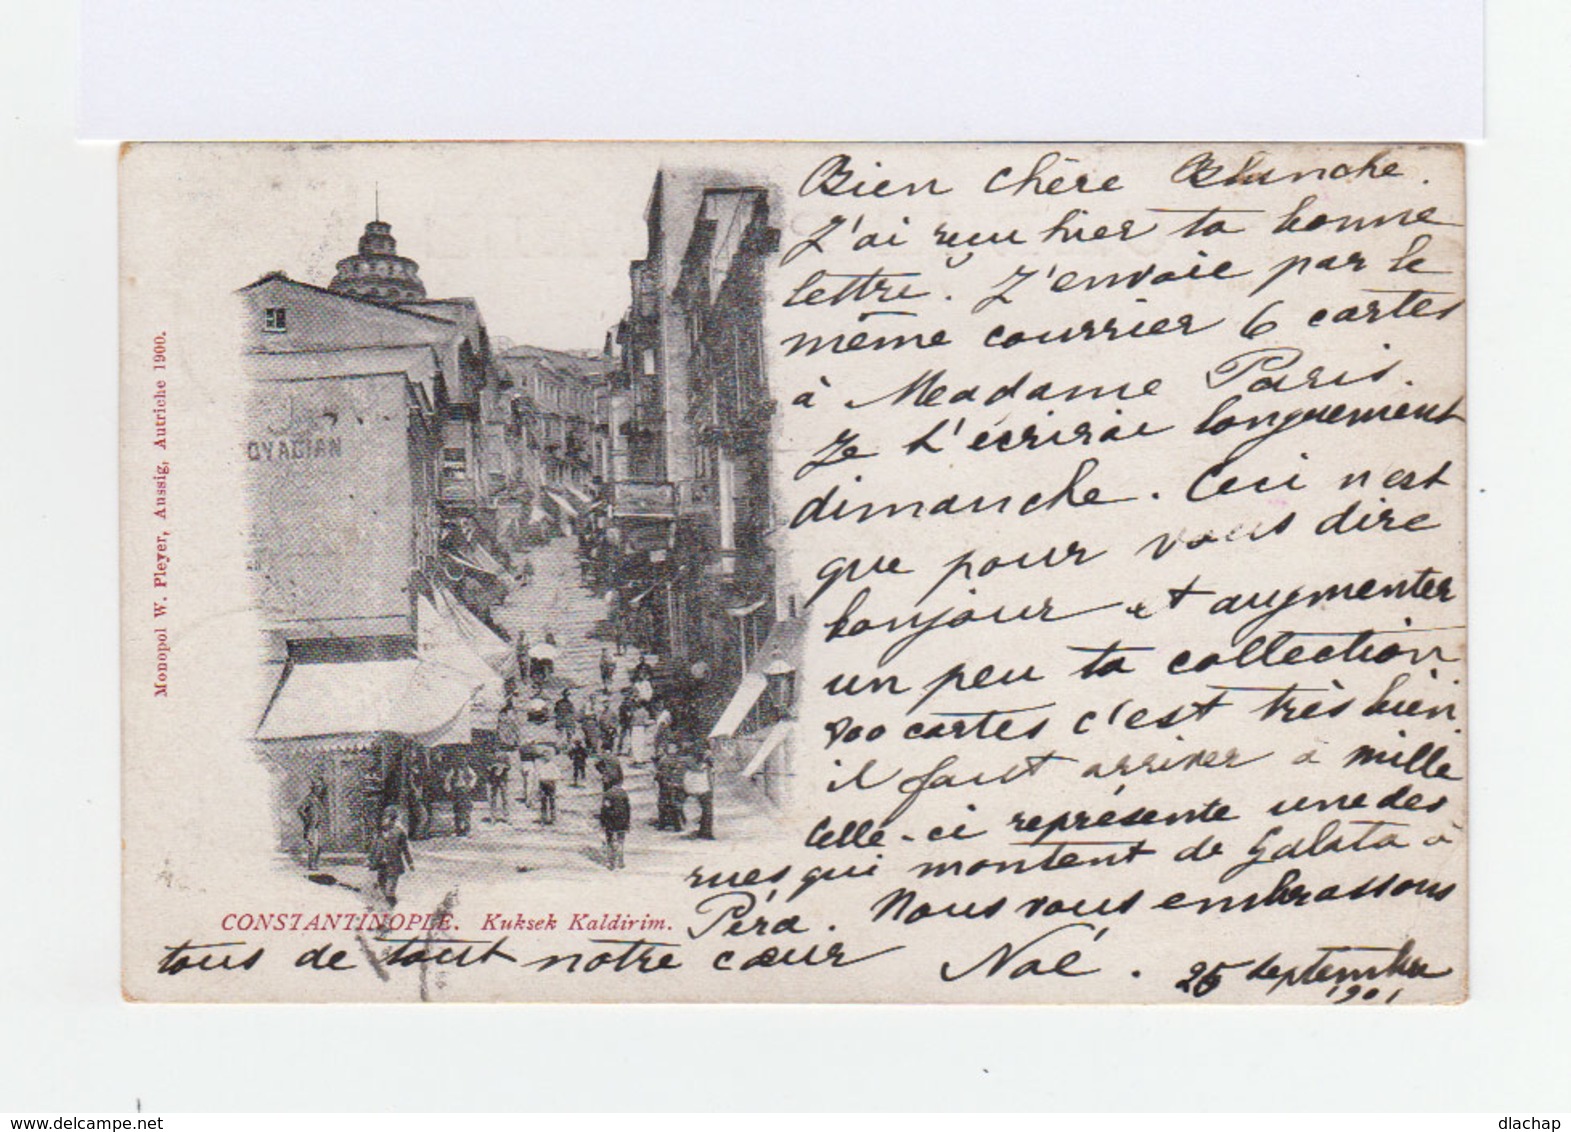 Bien chère Blanche.
J'ai reçu hier ta bonne
lettre. J'envoie par le
même courrier 6 cartes
à Madame Paris.
Je t'écrirai longuement
dimanche. Ceci n'est
que pour vous dire
bonjour et augmenter
un peu ta collection
800 cartes c'est très bien
il faut arriver à mille
Celle-ci représente une des
rues qui montent de Galata à
Péra. Nous vous embrassons
tous de tout notre cœur Noé.
25 septembre
1901
OYAGIAN
CONSTANTINOPLE. Kuksek Kaldirim.
Monopol W. Pleyer, Aussig, Autriche 1900.
delcampe.net
dlachap